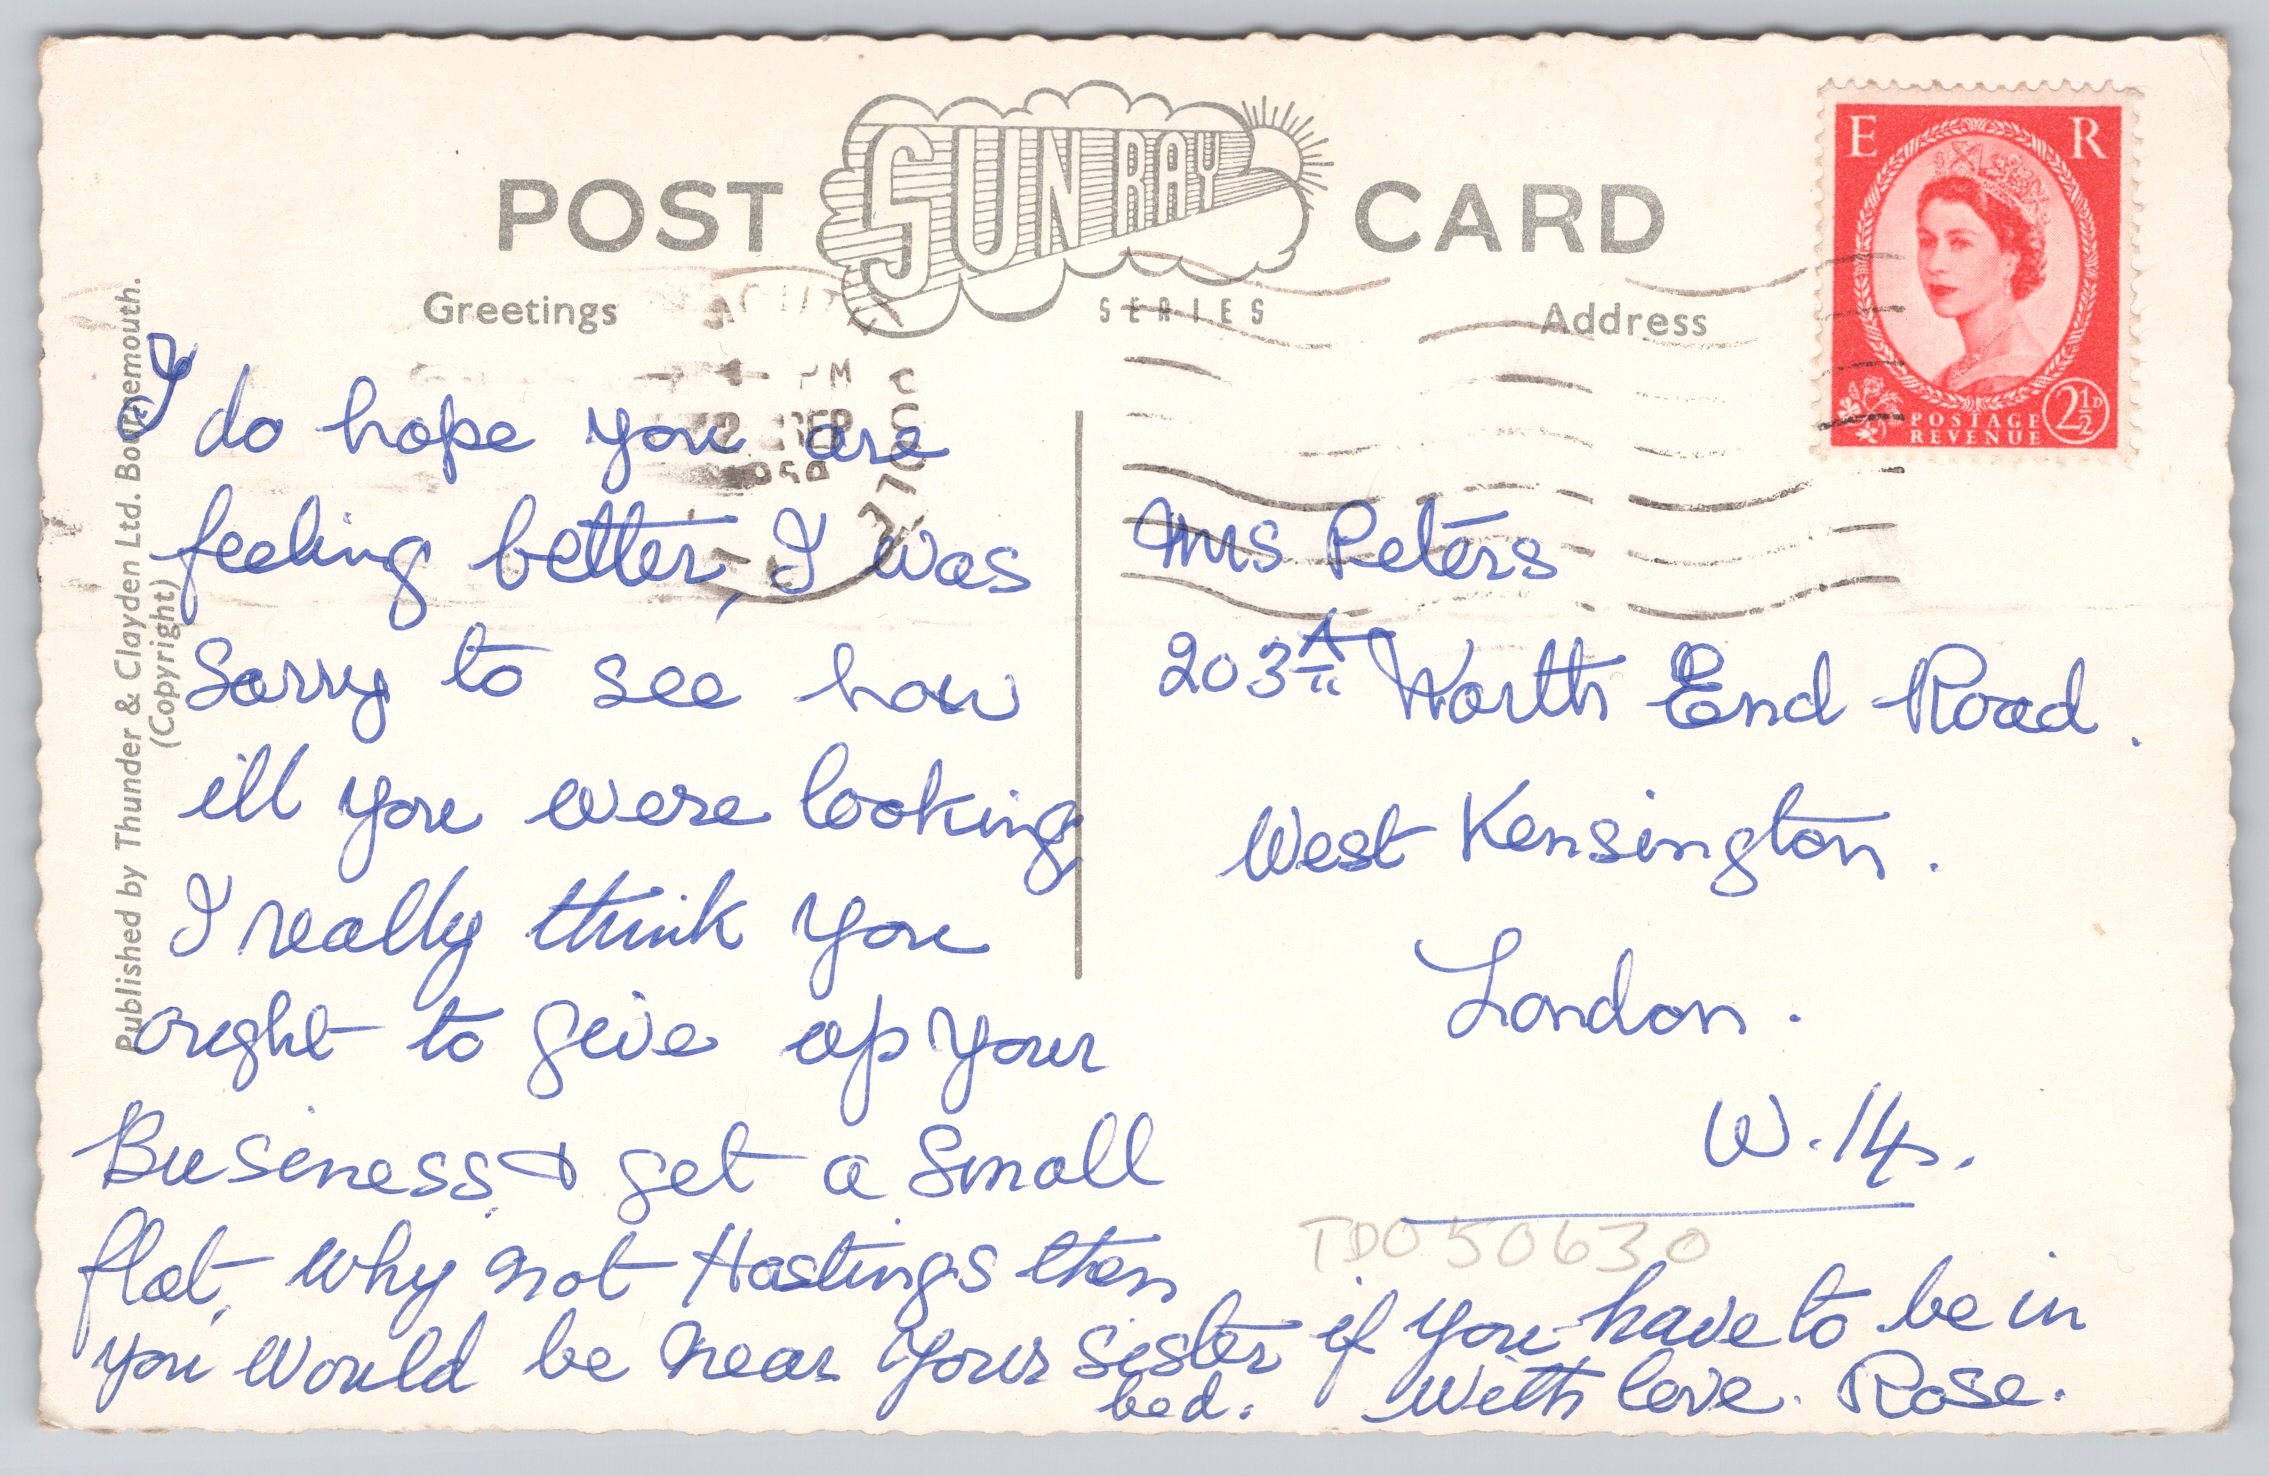 POST SUNRAY CARD
SERIES
Greetings
Address
E R
POSTAGE
REVENUE
2½D
PM
SEP
Published by Thunder & Clayden Ltd. Bournemouth.
(Copyright)
I do hope you are
feeling better, I was
Sorry to see how
ill you were looking,
I really think you
ought to give up your
Business & get a Small
flat, why not Hastings then
you would be near your Sister if you have to be in
bed. With love. Rose.
Mrs Peters
203A North End Road.
West Kensington.
London.
W.14.
TDO50630